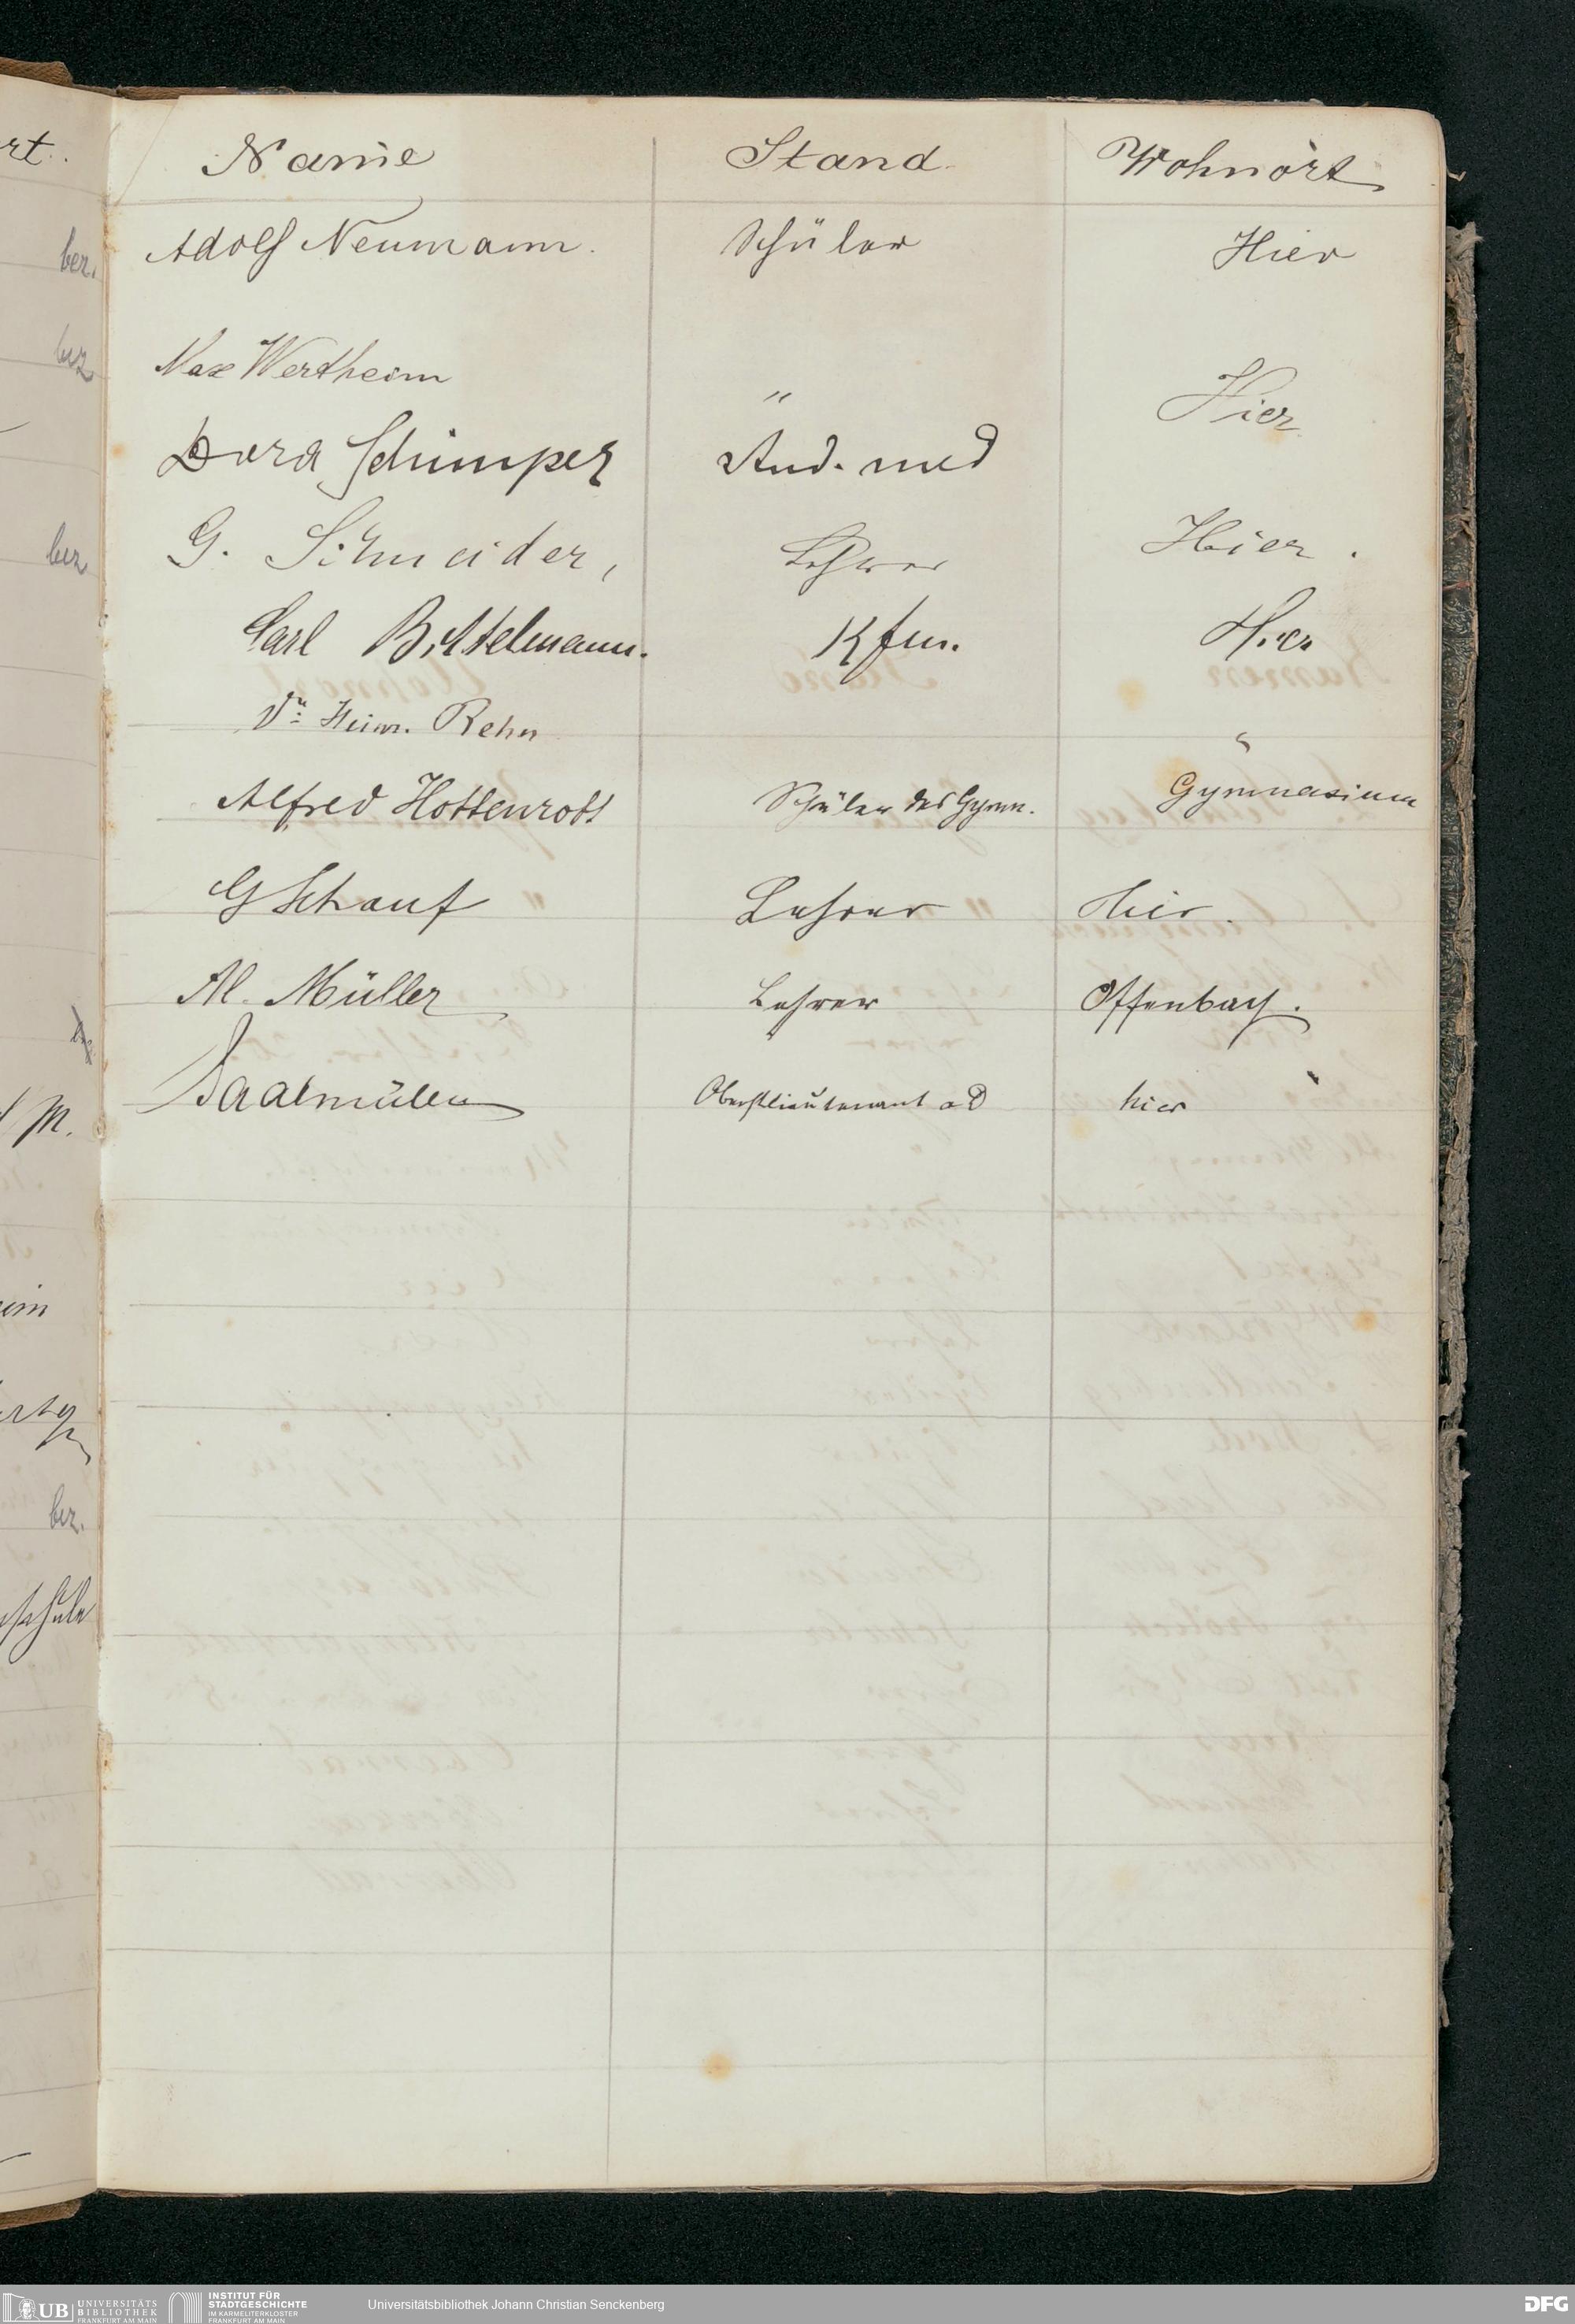 Name Stand Wohnort
Adolf Neumann. Schüler Hier
Max Wertheim " Hier
Dora Schimper Stud. med
G. Schneider, Lehrer Hier.
Carl Bittelmann. Kfm. Hier
Dr. Heinr. Rehn "
Alfred Hottenrott Schüler des Gymn. Gymnasium
G Schauf Lehrer Hier.
Al. Müller Lehrer Offenbach.
Saalmüller Oberstlieutenant aD hier
rt.
ber.
bez
bez
M.
eim
bez.
schule
UB UNIVERSITÄTS BIBLIOTHEK FRANKFURT AM MAIN
INSTITUT FÜR STADTGESCHICHTE IM KARMELITERKLOSTER FRANKFURT AM MAIN
Universitätsbibliothek Johann Christian Senckenberg
DFG